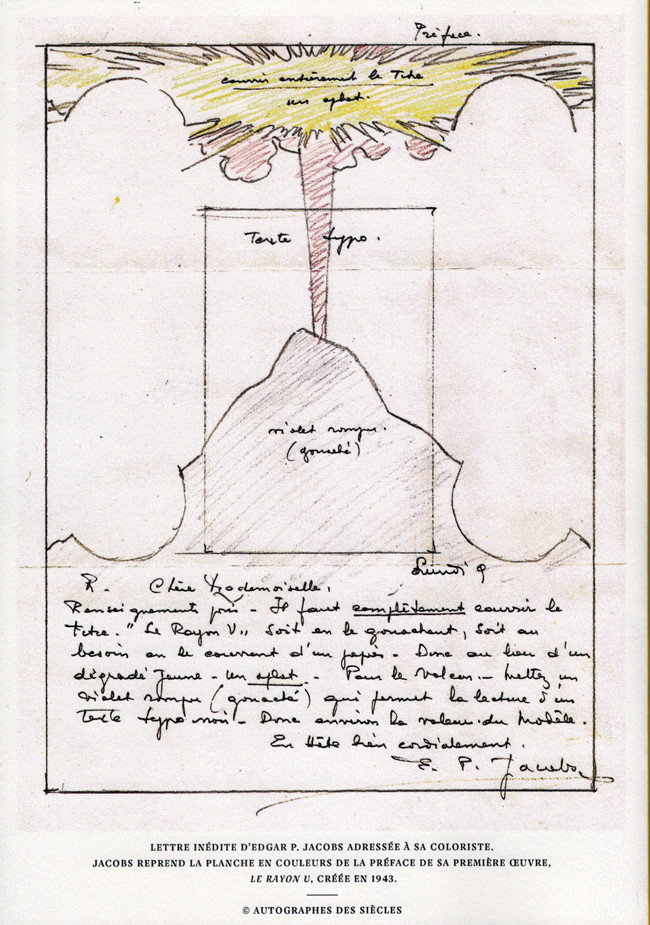 Préface.
couvrir entièrement le Titre
un aplat.
Texte typo.
violet rompu.
(gouaché)
Lundi 9
R. Chère Mademoiselle,
Renseignements pris - Il faut complètement couvrir le
titre. "Le Rayon U" soit en le gouachant, soit au
besoin en le couvrant d'un papier - Donc au lieu d'un
dégradé jaune - un aplat - Pour le Volcan - mettez un
violet rompu (gouaché) qui permet la lecture d'un
texte typo noir - Donc environ la valeur du modèle.
En Hâte bien cordialement.
E. P. Jacobs
LETTRE INÉDITE D'EDGAR P. JACOBS ADRESSÉE À SA COLORISTE.
JACOBS REPREND LA PLANCHE EN COULEURS DE LA PRÉFACE DE SA PREMIÈRE ŒUVRE,
LE RAYON U, CRÉÉE EN 1943.
© AUTOGRAPHES DES SIÈCLES